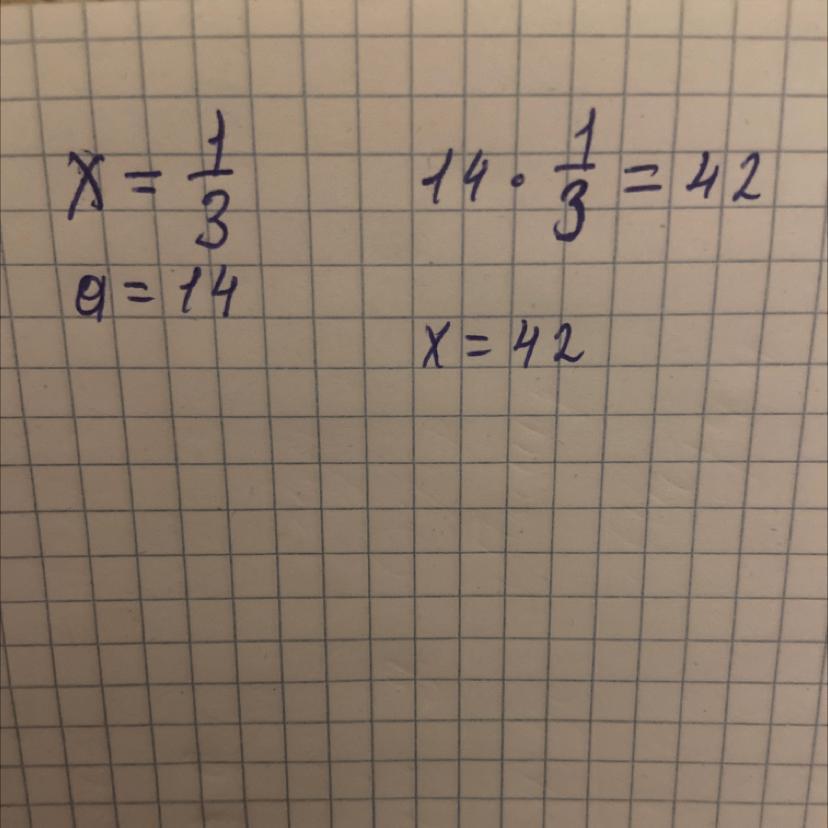 x = 1/3
a = 14
14 · 1/3 = 42
x = 42